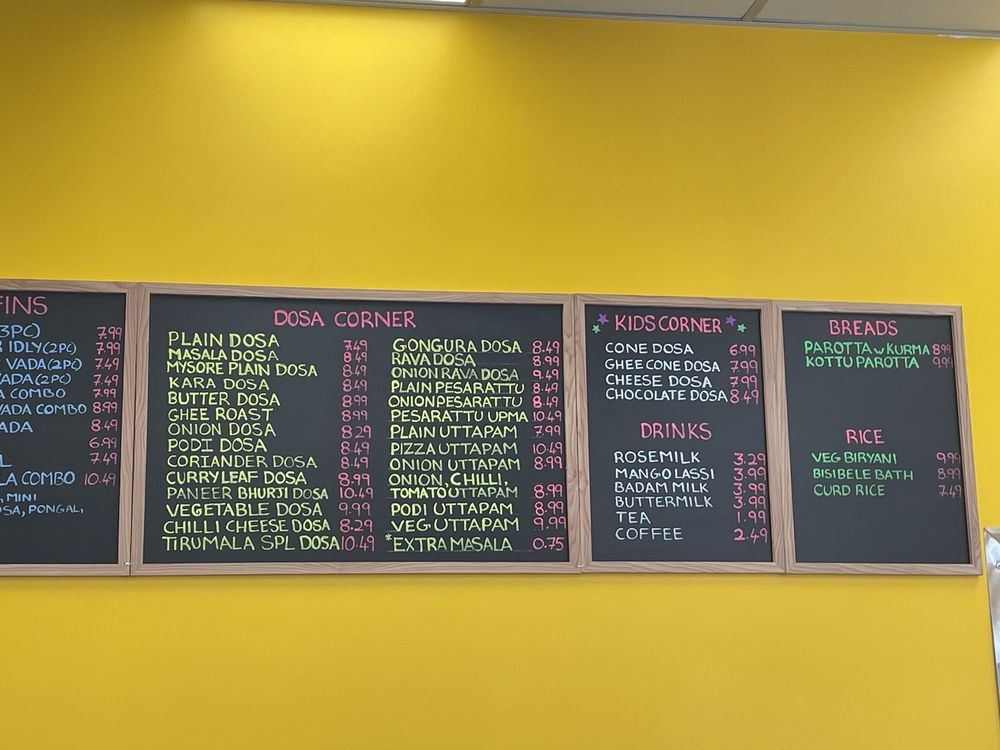 FINS
3PC) 7.99
IDLY(2PC) 7.99
VADA(2PC) 7.49
VADA(2PC) 7.49
COMBO 7.99
VADA COMBO 8.99
ADA 8.49
6.99
7.49
LA COMBO 10.49
, MINI
OSA, PONGAL,
DOSA CORNER
PLAIN DOSA 7.49
MASALA DOSA 8.49
MYSORE PLAIN DOSA 8.49
KARA DOSA 8.49
BUTTER DOSA 8.99
GHEE ROAST 8.99
ONION DOSA 8.29
PODI DOSA 8.49
CORIANDER DOSA 8.49
CURRYLEAF DOSA 8.99
PANEER BHURJI DOSA 10.49
VEGETABLE DOSA 9.99
CHILLI CHEESE DOSA 8.29
TIRUMALA SPL DOSA 10.49
GONGURA DOSA 8.49
RAVA DOSA 8.99
ONION RAVA DOSA 9.49
PLAIN PESARATTU 8.49
ONION PESARATTU 8.49
PESARATTU UPMA 10.49
PLAIN UTTAPAM 7.99
PIZZA UTTAPAM 10.49
ONION UTTAPAM 8.99
ONION, CHILLI,
TOMATO UTTAPAM 8.99
PODI UTTAPAM 8.99
VEG UTTAPAM 9.99
*EXTRA MASALA 0.75
KIDS CORNER
CONE DOSA 6.99
GHEE CONE DOSA 7.99
CHEESE DOSA 7.99
CHOCOLATE DOSA 8.49
DRINKS
ROSEMILK 3.29
MANGO LASSI 3.99
BADAM MILK 3.99
BUTTERMILK 3.99
TEA 1.99
COFFEE 2.49
BREADS
PAROTTA w KURMA 8.99
KOTTU PAROTTA 9.99
RICE
VEG BIRYANI 9.99
BISIBELE BATH 8.99
CURD RICE 7.49